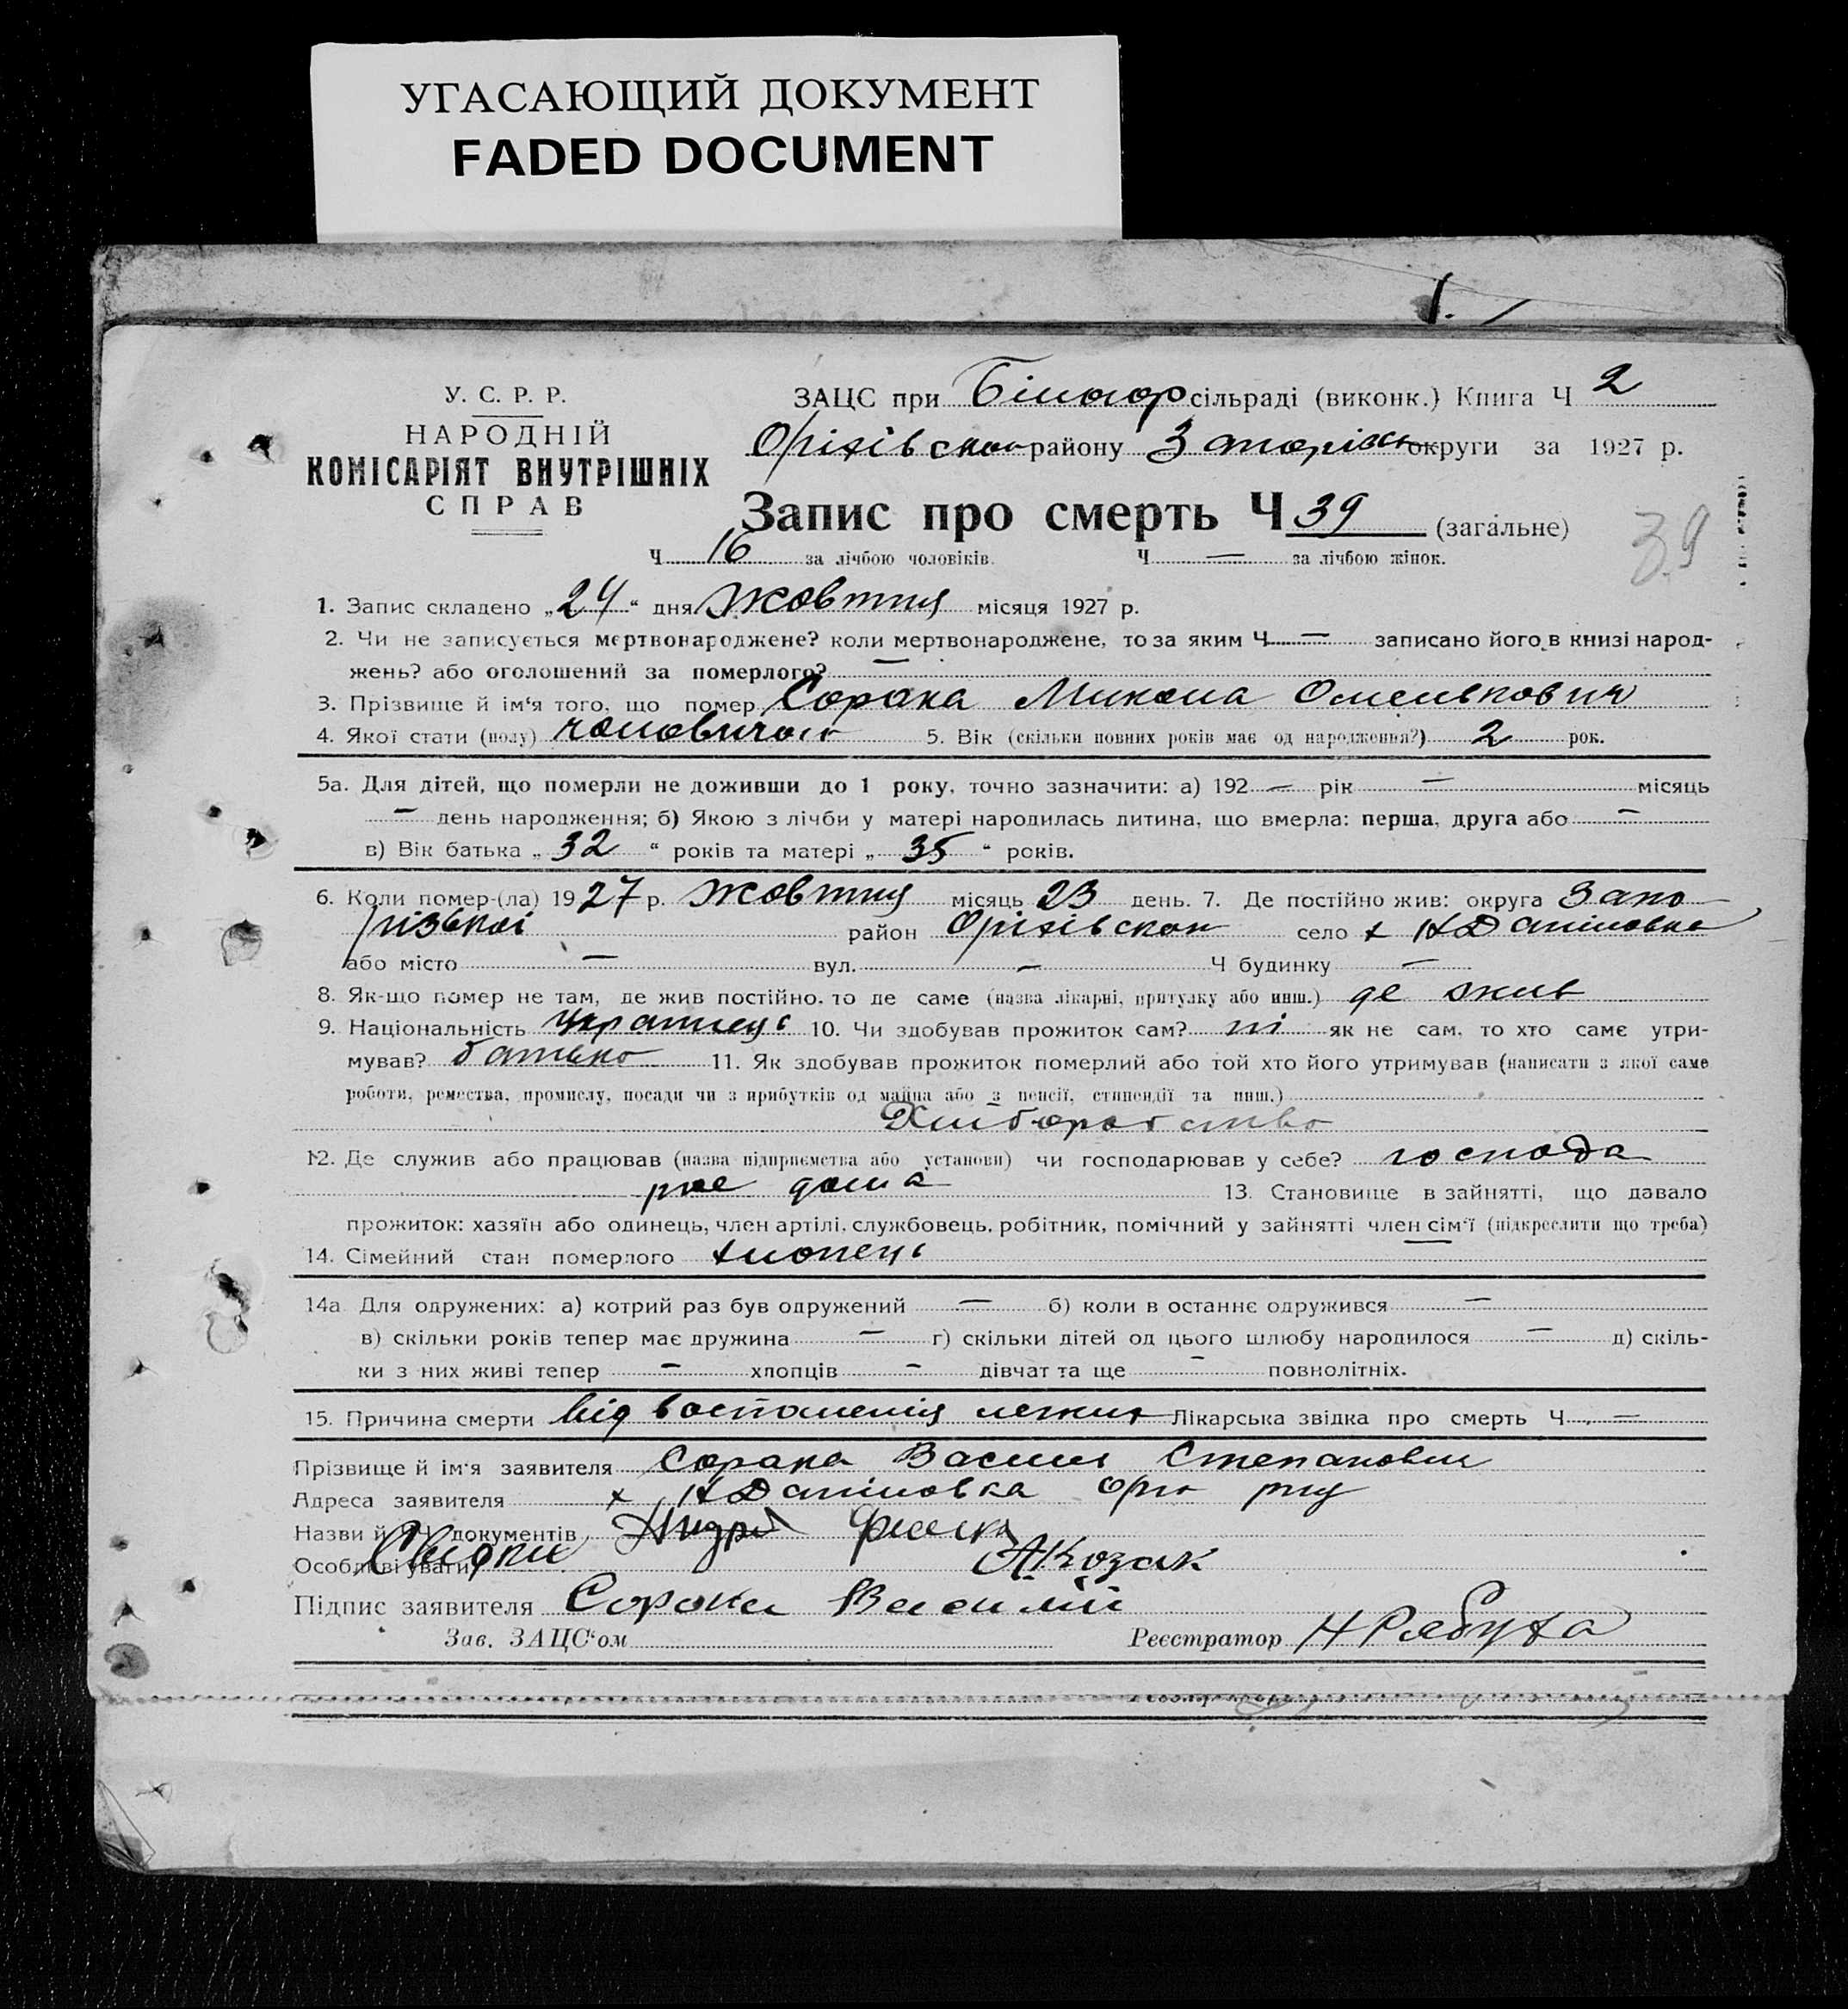 УГАСАЮЩИЙ ДОКУМЕНТ
FADED DOCUMENT
У. С. Р. Р.
НАРОДНІЙ
КОМІСАРІЯТ ВНУТРІШНІХ
СПРАВ
ЗАЦС при Білогор сільраді (виконк.) Книга Ч 2
Оріхівськ району Запоріськ округи за 1927 р.
Запис про смерть Ч 39 (загальне)
39
Ч 16 за лічбою чоловіків. Ч — за лічбою жінок.
1. Запис складено „24“ дня Жовтня місяця 1927 р.
2. Чи не записується мертвонароджене? коли мертвонароджене, то за яким Ч — записано його в книзі народ-
жень? або оголошений за померлого? —
3. Прізвище й ім‘я того, що помер Сорока Микола Омелькович
4. Якої стати (полу) чоловічої 5. Вік (скільки повних років має од народження?) 2 рок.
5а. Для дітей, що померли не доживши до 1 року, точно зазначити: а) 192 — рік — місяць
— день народження; б) Якою з лічби у матері народилась дитина, що вмерла: перша, друга або —
в) Вік батька „ 32 “ років та матері „ 35 “ років.
6. Коли помер-(ла) 1927 р. Жовтня місяць 23 день. 7. Де постійно жив: округа Запо
різькоі район Оріхівськ село х НДаніловка
або місто — вул. — Ч будинку —
8. Як-що помер не там, де жив постійно, то де саме (назва лікарні, притулку або инш.) де жив
9. Національність Українець 10. Чи здобував прожиток сам? ні як не сам, то хто саме утри-
мував? батько 11. Як здобував прожиток померлий або той хто його утримував (написати з якої саме
роботи, ремества, промислу, посади чи з прибутків од майна або з пенсії, стипендії та инш.)
Хліборобство
12. Де служив або працював (назва підприємства або установи) чи господарював у себе? господа
рює дома 13. Становище в зайнятті, що давало
прожиток: хазяїн або одинець, член артілі, службовець, робітник, помічний у зайнятті член сім‘ї (підкреслити що треба)
14. Сімейний стан померлого хлопець
14а. Для одружених: а) котрий раз був одружений — б) коли в останнє одружився —
в) скільки років тепер має дружина — г) скільки дітей од цього шлюбу народилося — д) скіль-
ки з них живі тепер — хлопців — дівчат та ще — повнолітніх.
15. Причина смерти від воспоменія легких Лікарська звідка про смерть Ч —
Прізвище й ім‘я заявителя Сорока Василь Степанович
Адреса заявителя х НДаніловка Оріх р-ну
Назви й Ч.Ч. документів Андрій
Особливі уваги Свідки АКозак
Підпис заявителя Сорока Василій
Зав. ЗАЦС‘ом Реєстратор Н Рябуха